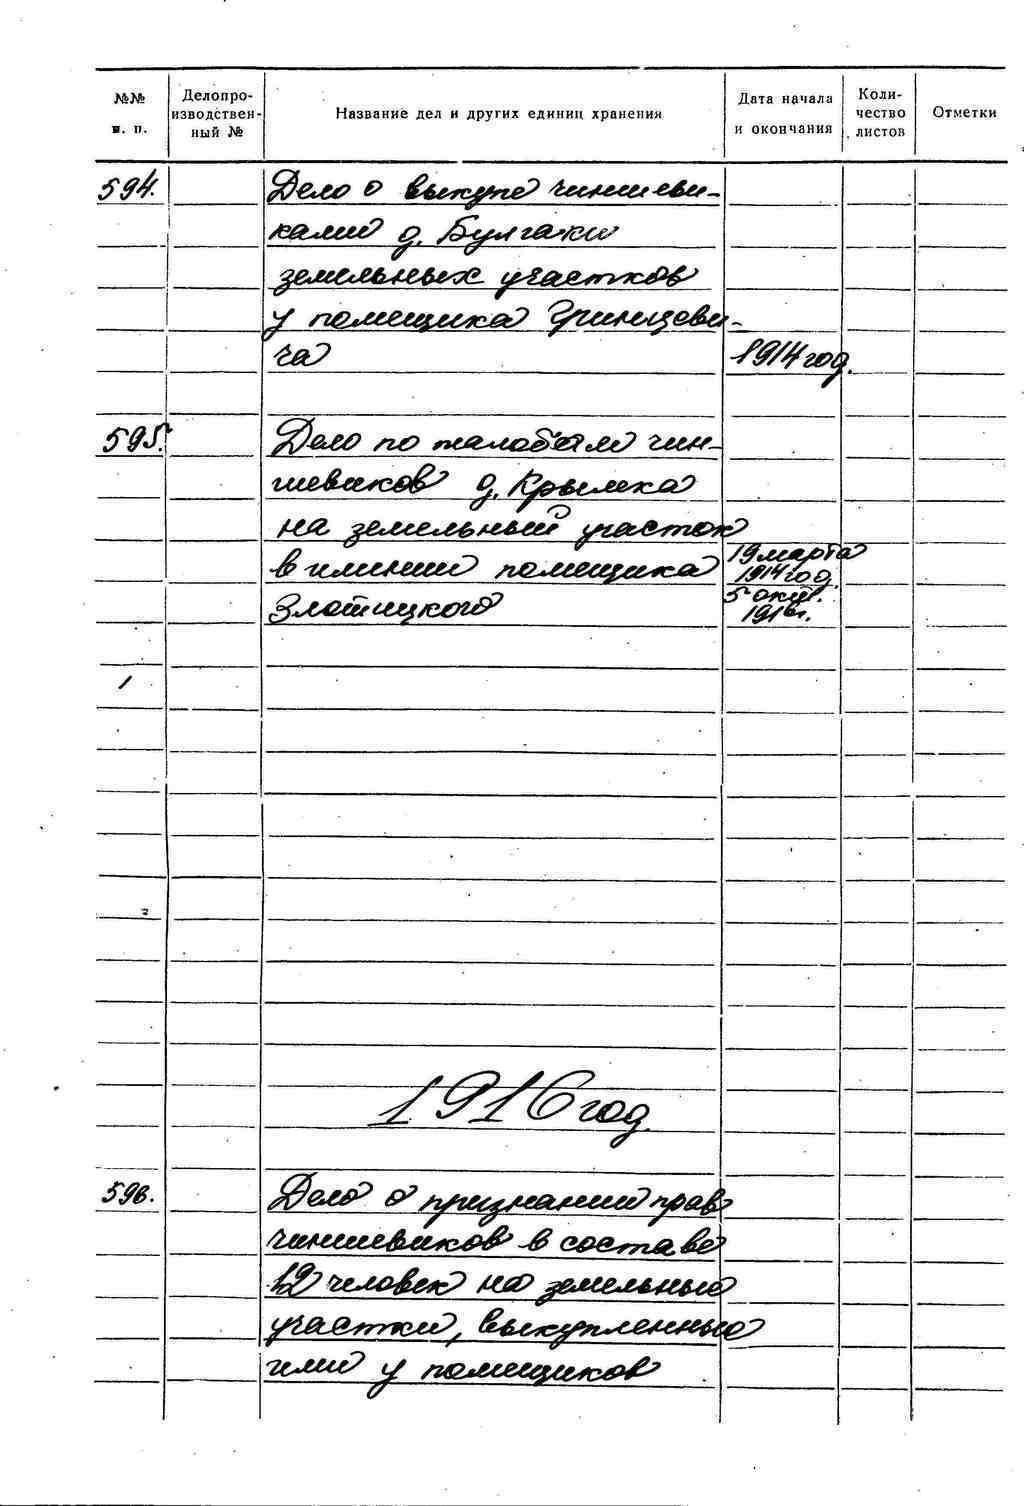 №№ п. п. Делопро-изводствен-ный № Название дел и других единиц хранения Дата начала и окончания Коли-чество листов Отметки
594. Дело о выкупе чиншеви-
ками д. Булгаки
земельных участков
у помещика Гринцеви-
ча 1914 год.
595. Дело по жалобам чин-
шевиков д. Крымка
на земельный участок
в имении помещика 19 марта 1914 год.
Злотницкого 5 окт. 1916г.
1916 год
596. Дело о признании прав
чиншевиков в составе
12 человек на земельные
участки, выкупленные
ими у помещиков